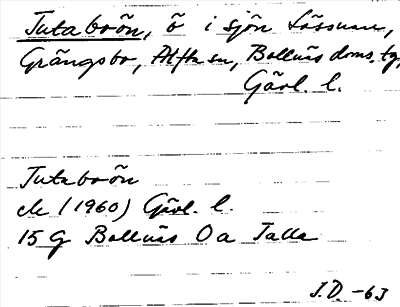 Jutaboön, ö i sjön Lössnaren,
Grängsbo, Alfta sn, Bollnäs doms. tg,
Gävl. l.
Jutaboön
ek (1960) Gävl. l.
15 G Bollnäs Oa Talla
J.D. -63